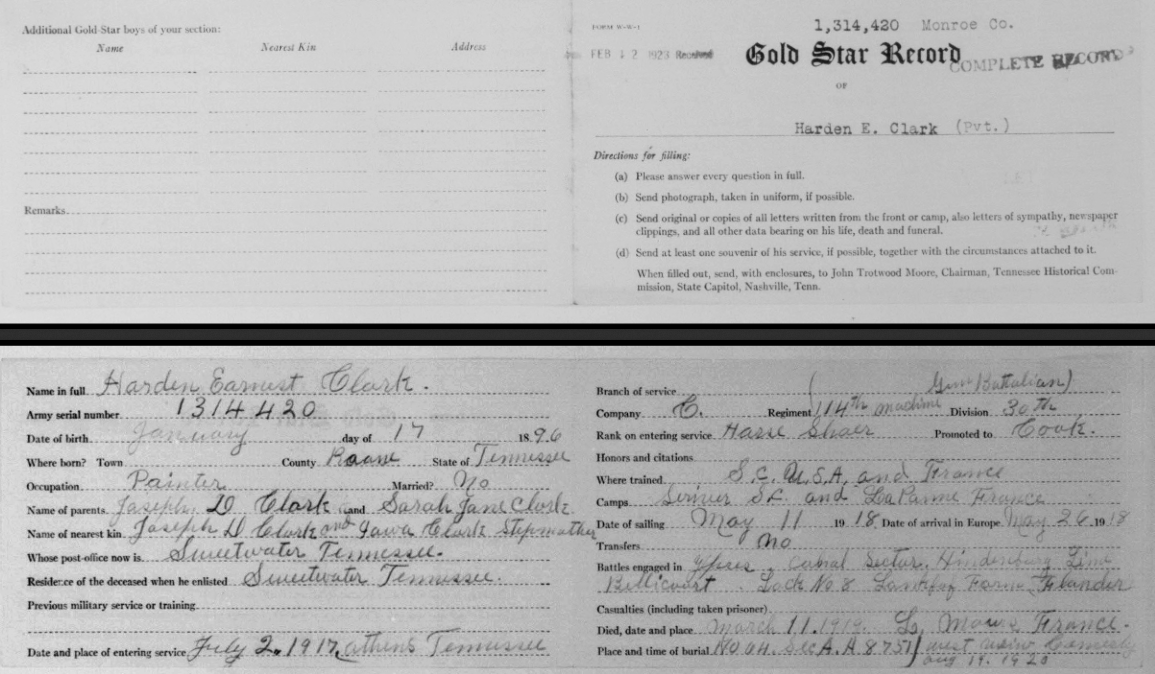 Additional Gold Star boys of your section:
Name Nearest Kin Address
Remarks
FORM W-W-1
1,314,420 Monroe Co.
FEB 12 1923 Received
Gold Star Record
COMPLETE RECORD
OF
Harden E. Clark (Pvt.)
Directions for filling:
(a) Please answer every question in full.
(b) Send photograph, taken in uniform, if possible.
(c) Send original or copies of all letters written from the front or camp, also letters of sympathy, newspaper
clippings, and all other data bearing on his life, death and funeral.
(d) Send at least one souvenir of his service, if possible, together with the circumstances attached to it.
When filled out, send, with enclosures, to John Trotwood Moore, Chairman, Tennessee Historical Com-
mission, State Capitol, Nashville, Tenn.
Name in full Harden Earnest Clark.
Army serial number. 1314420
Date of birth January day of 17 1896
Where born? Town County Roane State of Tennessee
Occupation Painter Married? No
Name of parents Joseph D Clark and Sarah Jane Clark
Name of nearest kin Joseph D Clark and Clark Stepmother
Whose post-office now is. Sweetwater Tennessee.
Residence of the deceased when he enlisted Sweetwater Tennessee.
Previous military service or training
Date and place of entering service July 2. 1917, athens Tennessee
Branch of service
Gun Battalian)
Company C. Regiment (114th machine Division 30th
Rank on entering service Hasse Shoer Promoted to Cook.
Honors and citations
Where trained S.C. U.S.A. and France
Camps Sevier S.C. and France
Date of sailing May 11 1918 Date of arrival in Europe May 26 1918
Transfers No
Battles engaged in Ypres, Sector, Hindenburg Line
Bellicourt Lock No 8 Farm, Flander
Casualties (including taken prisoner)
Died, date and place March 11. 1919. France.
Place and time of burial No 64. Sec A. A 8757/ west
aug 19. 1920